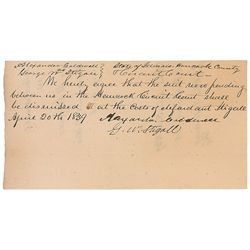 Alexander Caldwell } State of Indiana Hancock County
George W. Stigall } Circuit Court
We hereby agree that the suit now pending
between us in the Hancock Circuit Court shall
be dismissed at the costs of defendant Stigall
April 30th 1839 Alexander Caldwell
G. W. Stigall